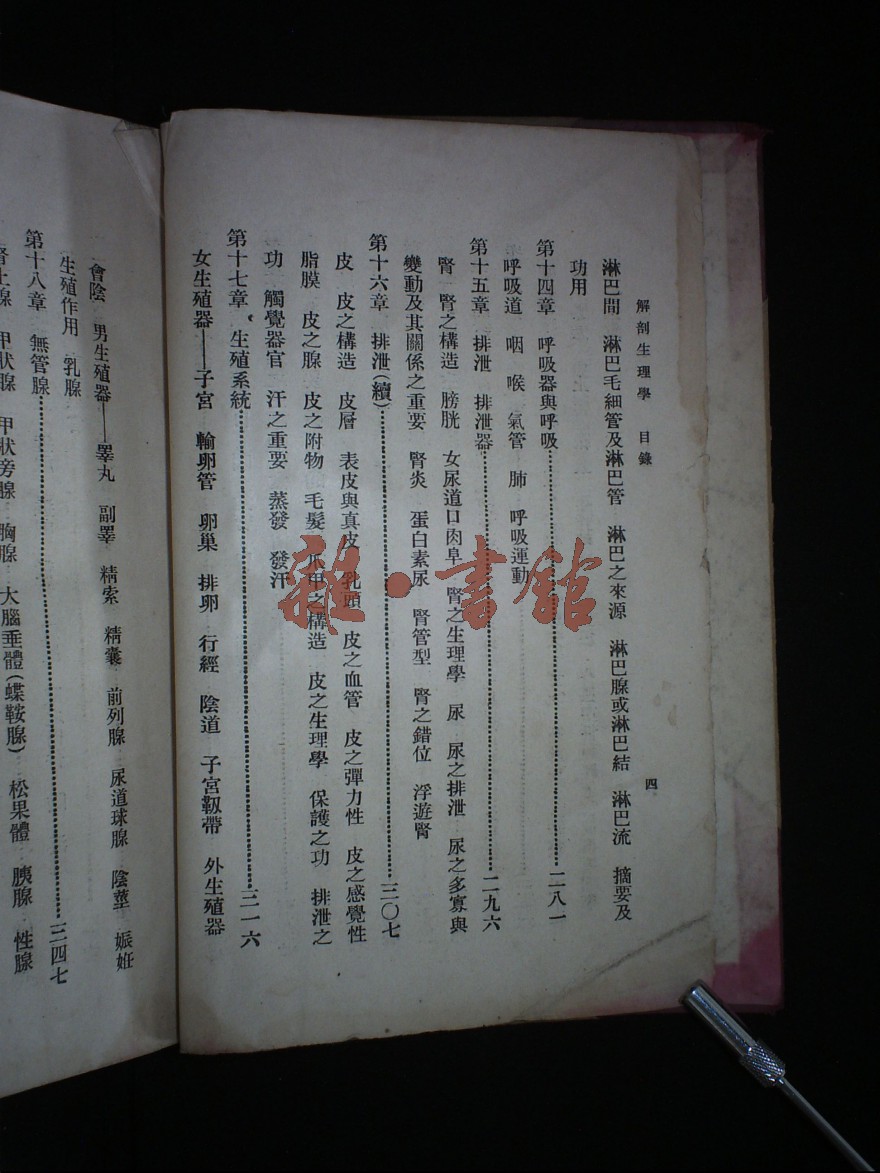 解剖生理學　目錄　四
淋巴間　淋巴毛細管及淋巴管　淋巴之來源　淋巴腺或淋巴結　淋巴流　摘要及
功用
第十四章　呼吸器與呼吸……二八一
呼吸道　咽　喉　氣管　肺　呼吸運動
第十五章　排泄　排泄器……二九六
腎　腎之構造　膀胱　女尿道口肉阜　腎之生理學　尿　尿之排泄　尿之多寡與
變動及其關係之重要　腎炎　蛋白素尿　腎管型　腎之錯位　浮遊腎
第十六章　排泄(續)……三〇七
皮　皮之構造　皮層　表皮與真皮　乳頭　皮之血管　皮之彈力性　皮之感覺性
脂膜　皮之腺　皮之附物　毛髮　爪甲之構造　皮之生理學　保護之功　排泄之
功　觸覺器官　汗之重要　蒸發　發汗
第十七章　生殖系統……三一六
女生殖器——子宮　輸卵管　卵巢　排卵　行經　陰道　子宮靱帶　外生殖器
會陰　男生殖器——睪丸　副睪　精索　精囊　前列腺　尿道球腺　陰莖　娠姙
生殖作用　乳腺
第十八章　無管腺……三四七
腎上腺　甲狀腺　甲狀旁腺　胸腺　大腦垂體(蝶鞍腺)　松果體　胰腺　性腺
雜·書館